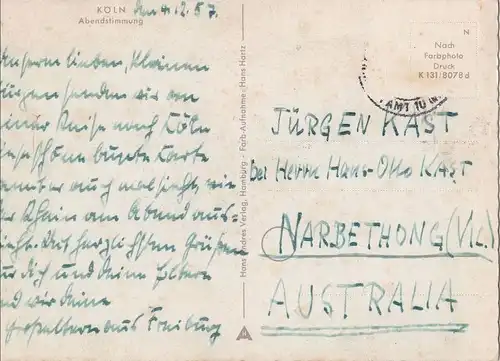 KÖLN
Abendstimmung
den 4.12.57.
unserm lieben, kleinen
Jürgen senden wir von
einer Reise nach Köln
diese schöne bunte Karte
damit er auch mal sieht, wie
der Rhein am Abend aus-
sieht. Mit herzlichsten Grüßen
für Dich und Deine Eltern
sind wir Deine
Großeltern aus Freiburg
Hans Andres Verlag, Hamburg - Farb-Aufnahme: Hans Hartz
N
Nach
Farbphoto
Druck
K 131/8078 d
AMT 10
JÜRGEN KAST
bei Herrn Hans-Otto KAST
NARBETHONG (Vic.)
AUSTRALIA